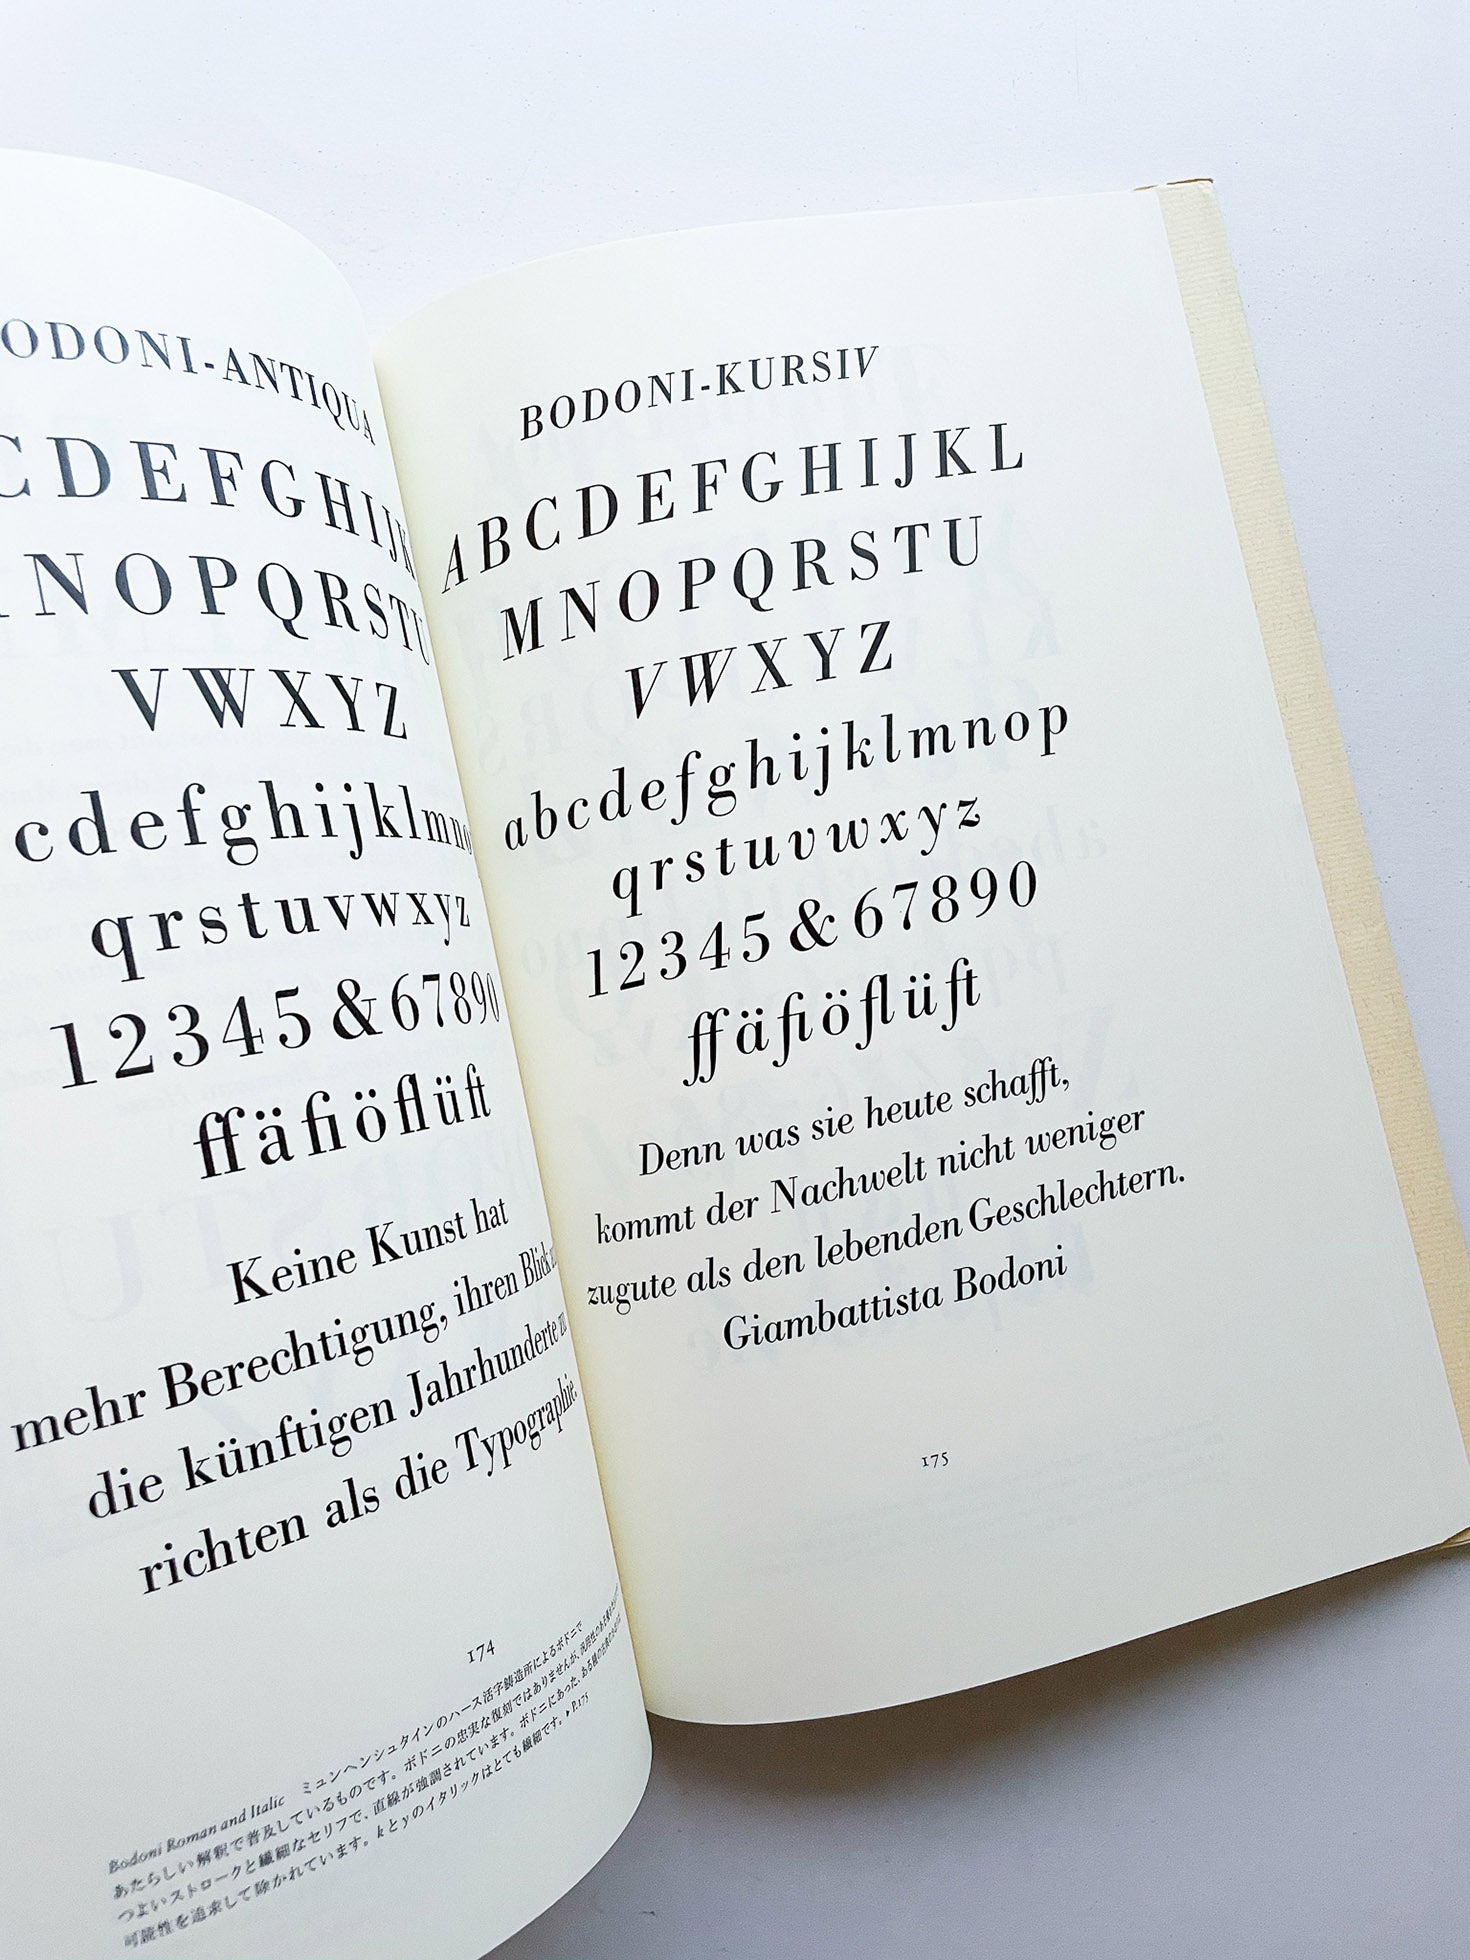 ODONI-ANTIQUA
CDEFGHIJK
NOPQRSTU
VWXYZ
cdefghijklmno
qrstuvwxyz
12345&67890
ffäfiöflüft
Keine Kunst hat
mehr Berechtigung, ihren Blick
die künftigen Jahrhunderte zu
richten als die Typographie.
174
Bodoni Roman and Italic ミュンヘンシュタインのハース活字鋳造所によるボドニで
あたらしい解釈で普及しているものです。ボドニの忠実な復刻ではありませんが、汎用性のある
つよいストロークと繊細なセリフで、直線が強調されています。ボドニにあった、ある種の
可能性を追求して除かれています。kとyのイタリックはとても繊細です。▶P.175
BODONI-KURSIV
ABCDEFGHIJKL
MNOPQRSTU
VWXYZ
abcdefghijklmnop
qrstuvwxyz
12345&67890
ffäfiöflüft
Denn was sie heute schafft,
kommt der Nachwelt nicht weniger
zugute als den lebenden Geschlechtern.
Giambattista Bodoni
175